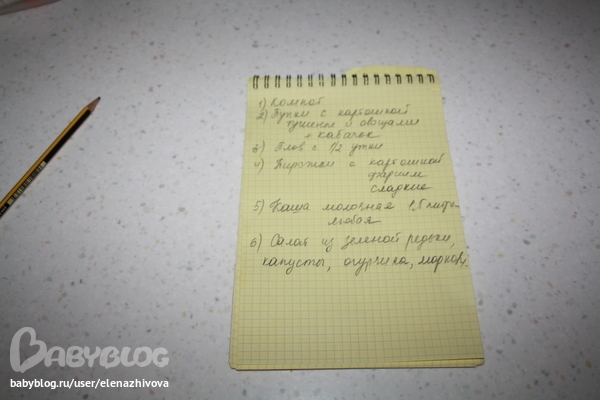 1) Компот
2) Пупки с картошкой
тушеные с овощами
+ кабачок
3) Плов с 1/2 утки
4) Пирожки с картошкой
фаршем
сладкие
5) Каша молочная 1,5 литра
любая
6) Салат из зеленой редьки,
капусты, огурчика, моркови.
BABYBLOG
babyblog.ru/user/elenazhivova